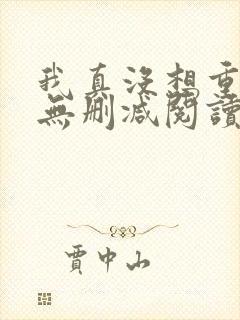 我真沒想重
無刪減閱讀
賈中山